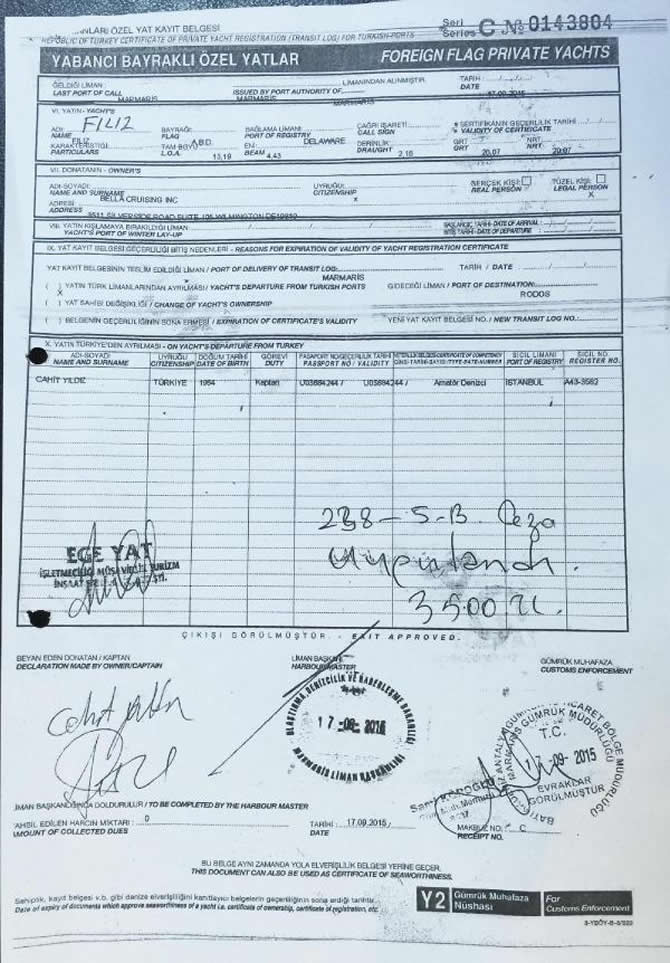 ANLARI ÖZEL YAT KAYIT BELGESİ
REPUBLIC OF TURKEY CERTIFICATE OF PRIVATE YACHT REGISTRATION (TRANSIT LOG) FOR TURKISH PORTS
Seri Series C № 0143804
YABANCI BAYRAKLI ÖZEL YATLAR FOREIGN FLAG PRIVATE YACHTS
GELDİĞİ LİMAN : LİMANINDAN ALINMIŞTIR. TARİH :
LAST PORT OF CALL ISSUED BY PORT AUTHORITY OF DATE
MARMARIS MARMARIS MARMARIS 17.09.2015
VI. YATIN - YACHT'S
FILIZ
ADI BAYRAĞI BAĞLAMA LİMANI ÇAĞRI İŞARETİ: SERTİFİKANIN GEÇERLİLİK TARİHİ
NAME FILIZ FLAG PORT OF REGISTRY CALL SIGN VALIDITY OF CERTIFICATE
KARAKTERİSTİĞİ TAM BOY A.B.D. EN: DELAWARE DERİNLİK GRT NRT
PARTICULARS L.O.A. 13,19 BEAM 4.43 DRAUGHT 2.15 GRT 20.07 NRT 20.07
VII. DONATANIN - OWNER'S
ADI-SOYADI: UYRUĞU: GERÇEK KİŞİ TÜZEL KİŞİ
NAME AND SURNAME BELLA CRUISING INC CITIZENSHIP X REAL PERSON LEGAL PERSON X
ADRESİ
ADDRESS 3511 SILVERSIDE ROAD SUITE 105 WILMINGTON DE19810
VIII. YATIN KIŞLAMAYA BIRAKILDIĞI LİMAN BAŞLANGIÇ TARİHİ - DATE OF ARRIVAL :
YACHT'S PORT OF WINTER LAY-UP BİTİŞ TARİHİ - DATE OF DEPARTURE :
IX. YAT KAYIT BELGESİ GEÇERLİLİĞİ BİTİŞ NEDENLERİ - REASONS FOR EXPIRATION OF VALIDITY OF YACHT REGISTRATION CERTIFICATE
YAT KAYIT BELGESİNİN TESLİM EDİLDİĞİ LİMAN / PORT OF DELIVERY OF TRANSIT LOG: TARİH / DATE
MARMARIS
( X ) YATIN TÜRK LİMANLARINDAN AYRILMASI / YACHT'S DEPARTURE FROM TURKISH PORTS GİDECEĞİ LİMAN / PORT OF DESTINATION:
RODOS
( ) YAT SAHİBİ DEĞİŞİKLİĞİ / CHANGE OF YACHT'S OWNERSHIP
( ) BELGENİN GEÇERLİLİĞİNİN SONA ERMESİ / EXPIRATION OF CERTIFICATE'S VALIDITY YENİ YAT KAYIT BELGESİ NO. / NEW TRANSIT LOG NO.:
X. YATIN TÜRKİYE'DEN AYRILMASI - ON YACHT'S DEPARTURE FROM TURKEY
ADI-SOYADI UYRUĞU DOĞUM TARİHİ GÖREVİ PASAPORT NO/GEÇERLİLİK TARİHİ SİCİL LİMANI SİCİL NO.
NAME AND SURNAME CITIZENSHIP DATE OF BIRTH DUTY PASSPORT NO / VALIDITY PORT OF REGISTRY REGISTER NO.
CAHİT YILDIZ TÜRKİYE 1964 Kaptan U03684244 / U03684244 / Amatör Denizci İSTANBUL A43-3562
238 - 5-B Ceza
uygulandı.
3500 TL.
EGE YAT
İŞLETMECİLİĞİ MÜŞAVİRLİK TURİZM
ÇIKIŞI GÖRÜLMÜŞTÜR. - EXIT APPROVED.
BEYAN EDEN DONATAN / KAPTAN LİMAN BAŞKANI GÜMRÜK MUHAFAZA
DECLARATION MADE BY OWNER/CAPTAIN HARBOUR MASTER CUSTOMS ENFORCEMENT
ULAŞTIRMA, DENİZCİLİK VE HABERLEŞME BAKANLIĞI
17-09-2015
MARMARİS LİMAN BAŞKANLIĞI
T.C.
17-09-2015
EVRAKLAR
GÖRÜLMÜŞTÜR
MARMARİS GÜMRÜK MÜDÜRLÜĞÜ
LİMAN BAŞKANLIĞINCA DOLDURULUR / TO BE COMPLETED BY THE HARBOUR MASTER
TAHSİL EDİLEN HARCIN MİKTARI : 0 TARİHİ : 17.09.2015 / MAKBUZ NO. : C
AMOUNT OF COLLECTED DUES DATE RECEIPT NO.
BU BELGE AYNI ZAMANDA YOLA ELVERİŞLİLİK BELGESİ YERİNE GEÇER.
THIS DOCUMENT CAN ALSO BE USED AS CERTIFICATE OF SEAWORTHINESS.
Sahiplik, kayıt belgesi v.b. gibi denize elverişliliğini kanıtlayıcı belgelerin geçerliliğinin sona erdiği tarihtir.
Date of expiry of documents which approve seaworthiness of a yacht i.e. certificate of ownership, certificate of registration, etc.
Y2 Gümrük Muhafaza Nüshası For Customs Enforcement